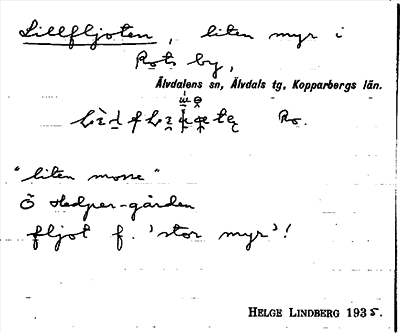 Lillfljoten, liten myr i
Rots by,
Älvdalens sn, Älvdals tg, Kopparbergs län.
Ro.
"liten mosse"
Ö Hedper-gården
fljot f. 'stor myr'!
HELGE LINDBERG 1935.